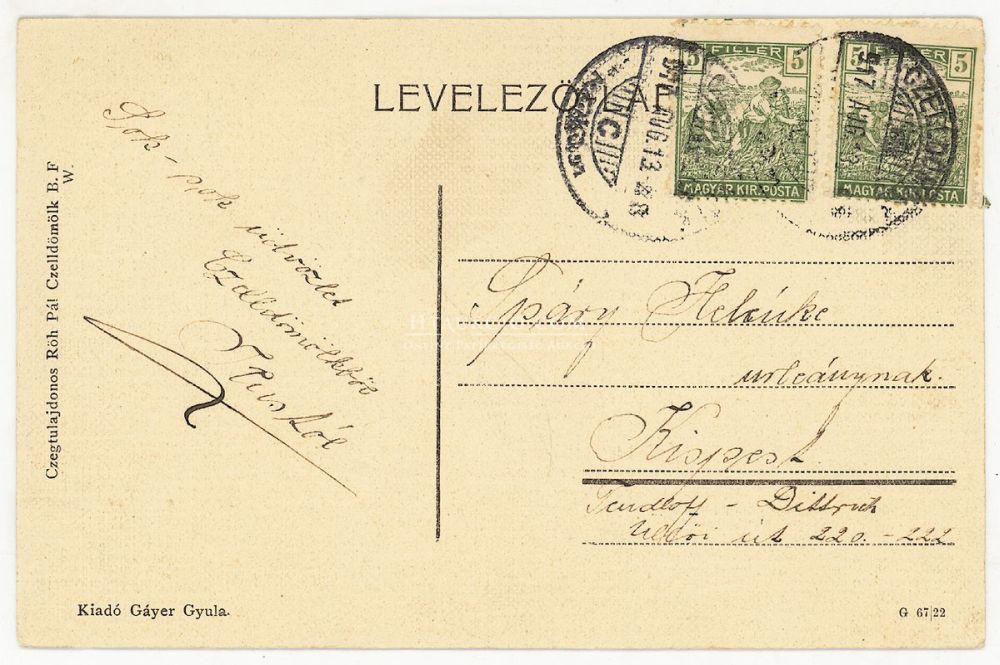 LEVELEZŐ LAP
5 FILLÉR 5
MAGYAR KIR. POSTA
5 FILLÉR 5
MAGYAR KIR. POSTA
917 AUG. 13
C
917 AUG
Czegtulajdonos Röh Pál Czelldömölk B. F
W.
Sok-sok üdvözlet
Czelldömölkből
Spáry
urleánynak.
Kispest
Dittrich
Üllői út 220.-222
Kiadó Gáyer Gyula.
G 67|22